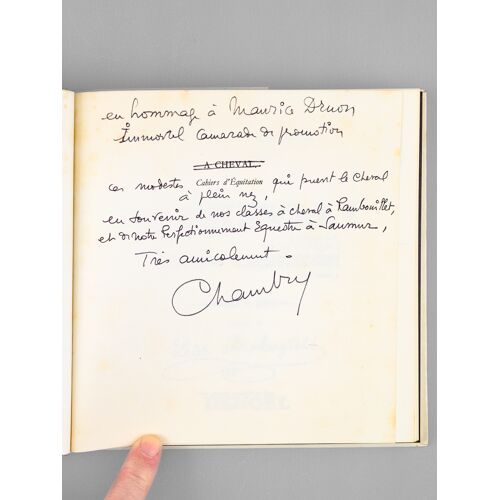 en hommage à Maurice Druon
Immortel Camarade de promotion
A CHEVAL.
ces modestes Cahiers d'Équitation, qui puent le Cheval
à plein nez,
en souvenir de nos classes à cheval à Rambouillet,
et de notre Perfectionnement Equestre à Saumur,
Très amicalement.
Chambry